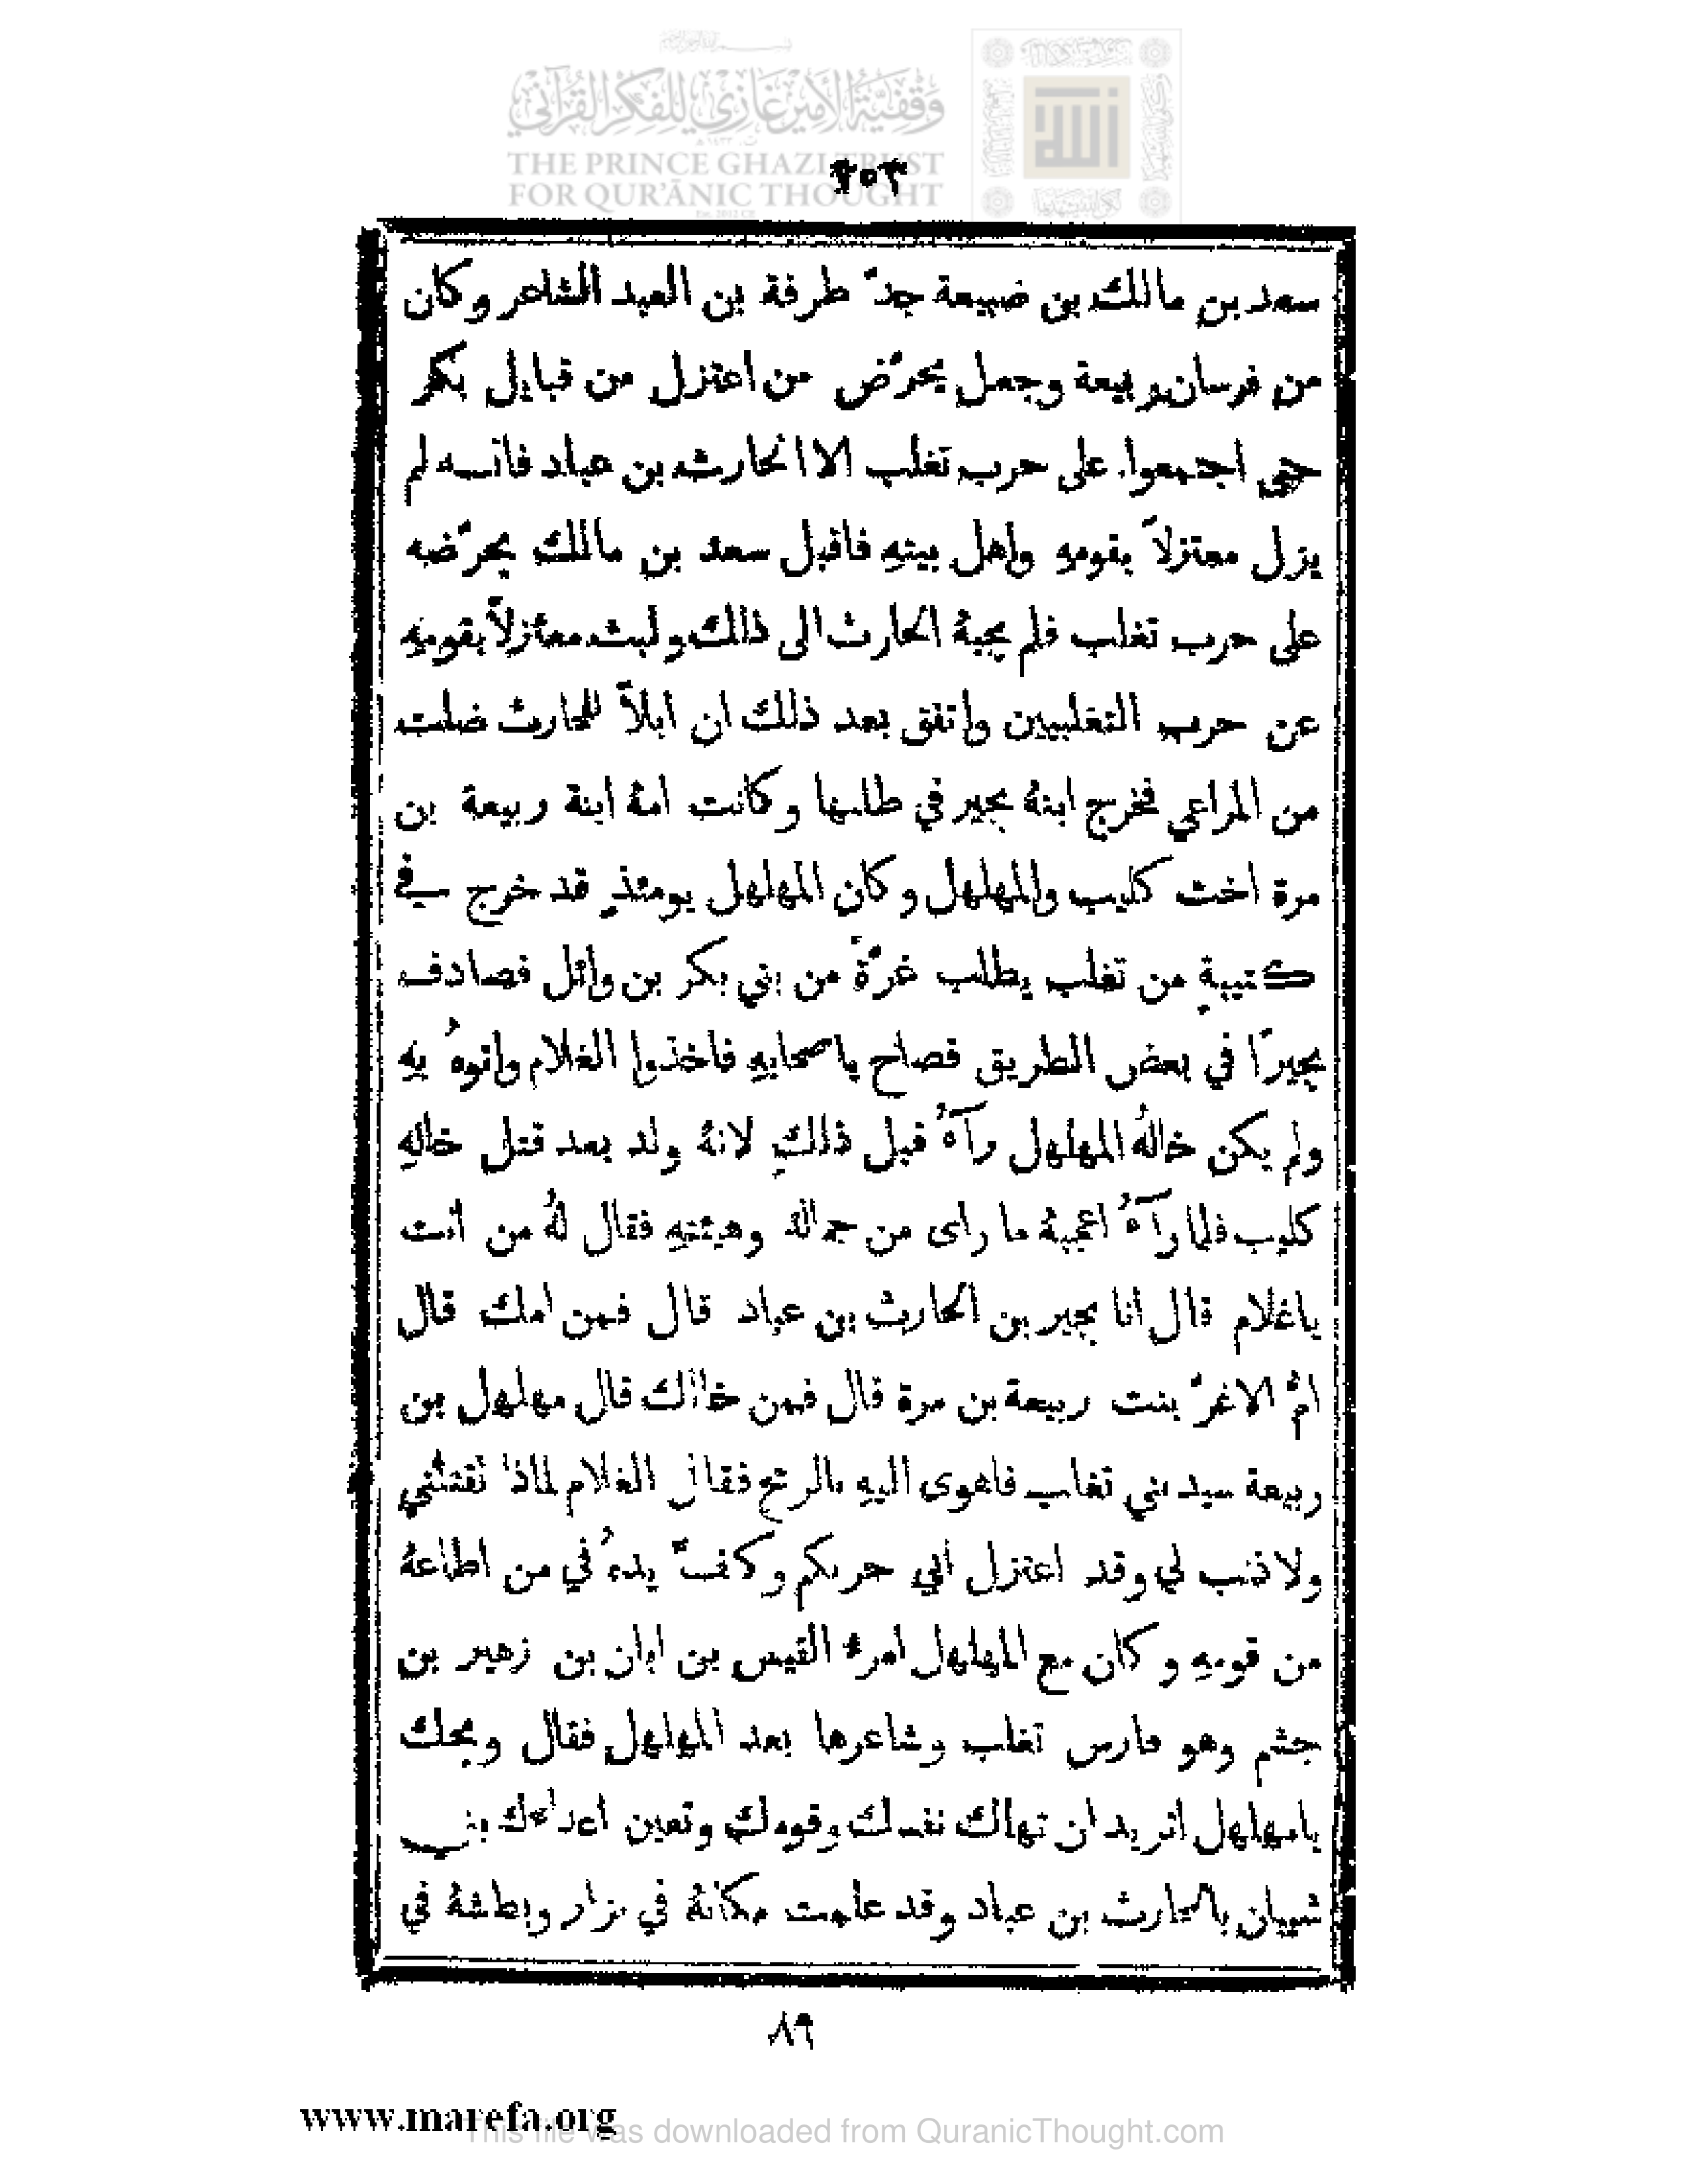 وقفية الأمير غازي للفكر القرآني
THE PRINCE GHAZI TRUST
FOR QUR'ĀNIC THOUGHT
سعد بن مالك بن ضبيعة جدّ طرفة بن العبد الشاعر وكان
من فرسان ربيعة وجعل يحرّض من اعتزل من قبايل بكر
حتى اجتمعوا على حرب تغلب الا الحارث بن عباد فانه لم
يزل معتزلاً بقومهِ واهل بيتهِ فاقبل سعد بن مالك يحرّضه
على حرب تغلب فلم يجبهُ الحارث الى ذلك ولبث معتزلاً بقومهِ
عن حرب التغلبيين واتفق بعد ذلك ان ابلاً للحارث ضلت
من المراعي فخرج ابنهُ بجير في طلبها وكانت امهُ ابنة ربيعة بن
مرة اخت كليب والمهلهل وكان المهلهل يومئذٍ قد خرج في
كتيبةٍ من تغلب يطلب غرّة من بني بكر بن وائل فصادف
بجيرًا في بعض الطريق فصاح باصحابهِ فاخذوا الغلام واتوهُ بهِ
ولم يكن خالهُ المهلهل رآهُ قبل ذلك لانهُ ولد بعد قتل خالهِ
كليب فلما رآهُ اعجبهُ ما راى من جمالهِ وهيئتهِ فقال لهُ من انت
ياغلام قال انا بجير بن الحارث بن عباد قال فمن امك قال
امُّ الاغرّ بنت ربيعة بن مرة قال فمن خالك قال مهلهل بن
ربيعة سيد بني تغلب فاهوى اليهِ بالرمح فقال الغلام لماذا تقتلني
ولا ذنب لي وقد اعتزل ابي حربكم وكفّ يدهُ في من اطاعهُ
من قومهِ وكان مع المهلهل امرء القيس بن ابان بن زهير بن
جشم وهو فارس تغلب وشاعرها بعد المهلهل فقال ويحك
يامهلهل اتريد ان تهلك نفسك وقومك وتعين اعداءك بني
شيبان بالحارث بن عباد وقد علمت مكانهُ في نزار وبطشهُ في
٨٩
www.marefa.org
This file was downloaded from QuranicThought.com